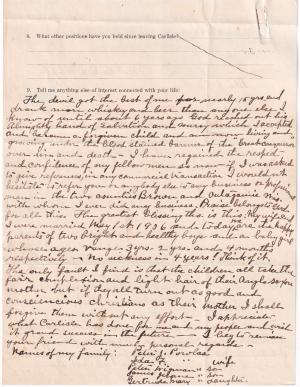 8. What other positions have you held since leaving Carlisle?
9. Tell me anything else of interest connected with your life:
The devil got the best of me for nearly 15 yrs and
drank more whiskey and beer than anyone else I
know of until about 6 years ago God reached out his
Almighty hand of Salvation and mercy which I accepted
and became a forgiven child and am now living and
growing under the blood stained banner of the Great Conqueror
over sin and death. I have regained the respect
and confidence of my fellow men so now if I was asked
to give references, in any commercial transaction I wouldn't
hesitate to refer you or anybody else to any business or prof-
men in the two counties Brown and Outagamie Wis
with whom I ever did any business. Praise belongs to God
for all this. The greatest blessing tho. is this
I was married and today are the happy
parents of two bright and healthy boys
whose ages range 3 yrs. 2 yrs and 4 months
respectively - No sickness in 4 years think of it.
The only fault I find is that the children all take the
fair complexion and light hair of their Anglo-saxon
mother but if they all turn out as good and
consciencious christians as their mother I shall
forgive them without any effort - I appreciate
what Carlisle has done for me and my people and wish
it grand success in the future - I beg to remain
your friend with much personal regards -
Names of my family:
wife
son
son
Gertrude Mary " daughter.